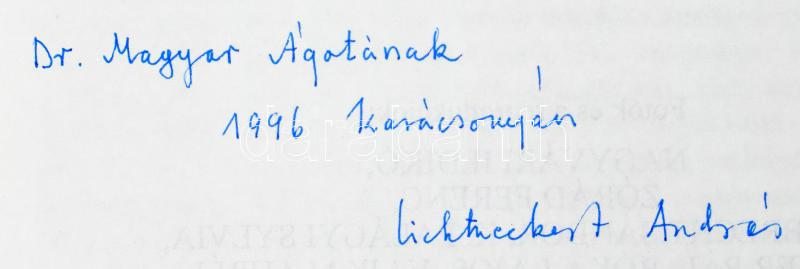 Dr. Magyar Ágotának
1996 Karácsonyán
Lichtneckert András
darabanth
Fotók és
NAGYVÁRI ILDIKÓ,
ZÓRÁD FERENC
SYLVIA,